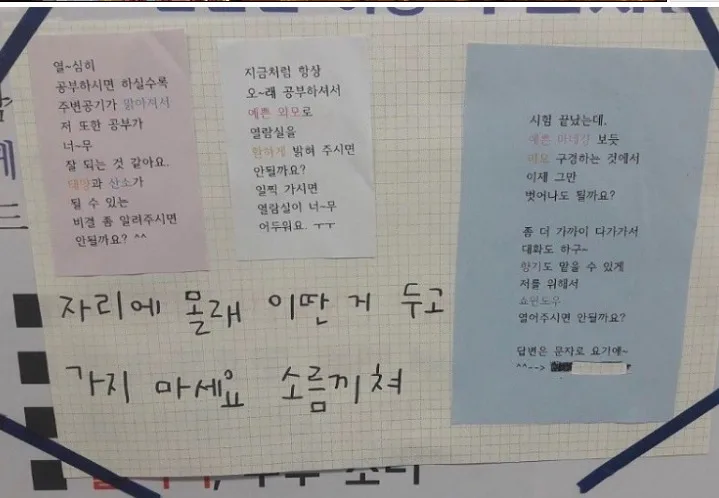 열~심히
공부하시면 하실수록
주변공기가 맑아져서
저 또한 공부가
너~무
잘 되는 것 같아요.
태양과 산소가
될 수 있는
비결 좀 알려주시면
안될까요? ^^
지금처럼 항상
오~래 공부하셔서
예쁜 외모로
열람실을
환하게 밝혀 주시면
안될까요?
일찍 가시면
열람실이 너~무
어두워요. ㅜㅜ
시험 끝났는데,
예쁜 마네킹 보듯
외모 구경하는 것에서
이제 그만
벗어나도 될까요?
좀 더 가까이 다가가서
대화도 하구~
향기도 맡을 수 있게
저를 위해서
쇼윈도우
열어주시면 안될까요?
답변은 문자로 요기에~
^^-->
자리에 몰래 이딴 거 두고
가지 마세요 소름끼쳐
소리